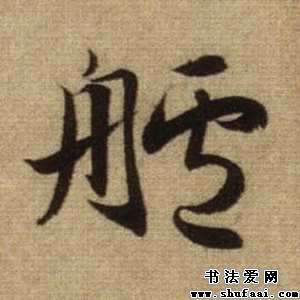 舻
书法爱网
www.shufaai.com